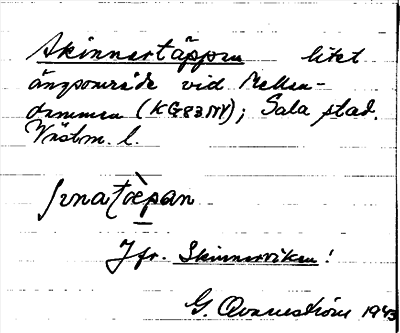 Skinnartäppan litet
ängsområde vid Mellan-
dammen (KG83NV); Sala stad.
Västm. l.
Jfr. Skinnarviken!
G. Qvarnström 1943